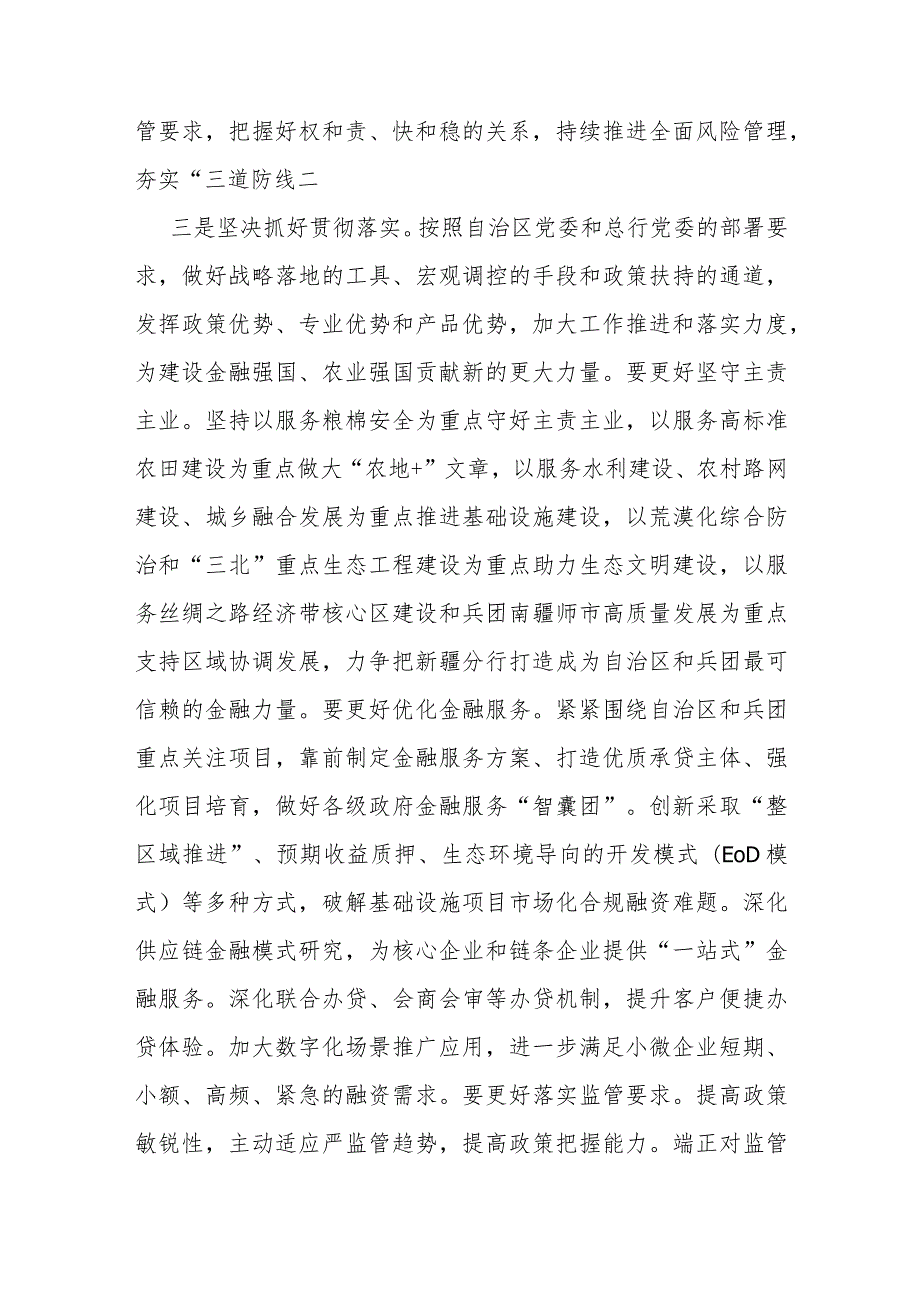 管要求，把握好权和责、快和稳的关系，持续推进全面风险管理，
夯实“三道防线二
三是坚决抓好贯彻落实。按照自治区党委和总行党委的部署要
求，做好战略落地的工具、宏观调控的手段和政策扶持的通道，
发挥政策优势、专业优势和产品优势，加大工作推进和落实力度，
为建设金融强国、农业强国贡献新的更大力量。要更好坚守主责
主业。坚持以服务粮棉安全为重点守好主责主业，以服务高标准
农田建设为重点做大“农地+”文章，以服务水利建设、农村路网
建设、城乡融合发展为重点推进基础设施建设，以荒漠化综合防
治和“三北”重点生态工程建设为重点助力生态文明建设，以服
务丝绸之路经济带核心区建设和兵团南疆师市高质量发展为重点
支持区域协调发展，力争把新疆分行打造成为自治区和兵团最可
信赖的金融力量。要更好优化金融服务。紧紧围绕自治区和兵团
重点关注项目，靠前制定金融服务方案、打造优质承贷主体、强
化项目培育，做好各级政府金融服务“智囊团”。创新采取“整
区域推进”、预期收益质押、生态环境导向的开发模式（EoD模
式）等多种方式，破解基础设施项目市场化合规融资难题。深化
供应链金融模式研究，为核心企业和链条企业提供“一站式”金
融服务。深化联合办贷、会商会审等办贷机制，提升客户便捷办
贷体验。加大数字化场景推广应用，进一步满足小微企业短期、
小额、高频、紧急的融资需求。要更好落实监管要求。提高政策
敏锐性，主动适应严监管趋势，提高政策把握能力。端正对监管